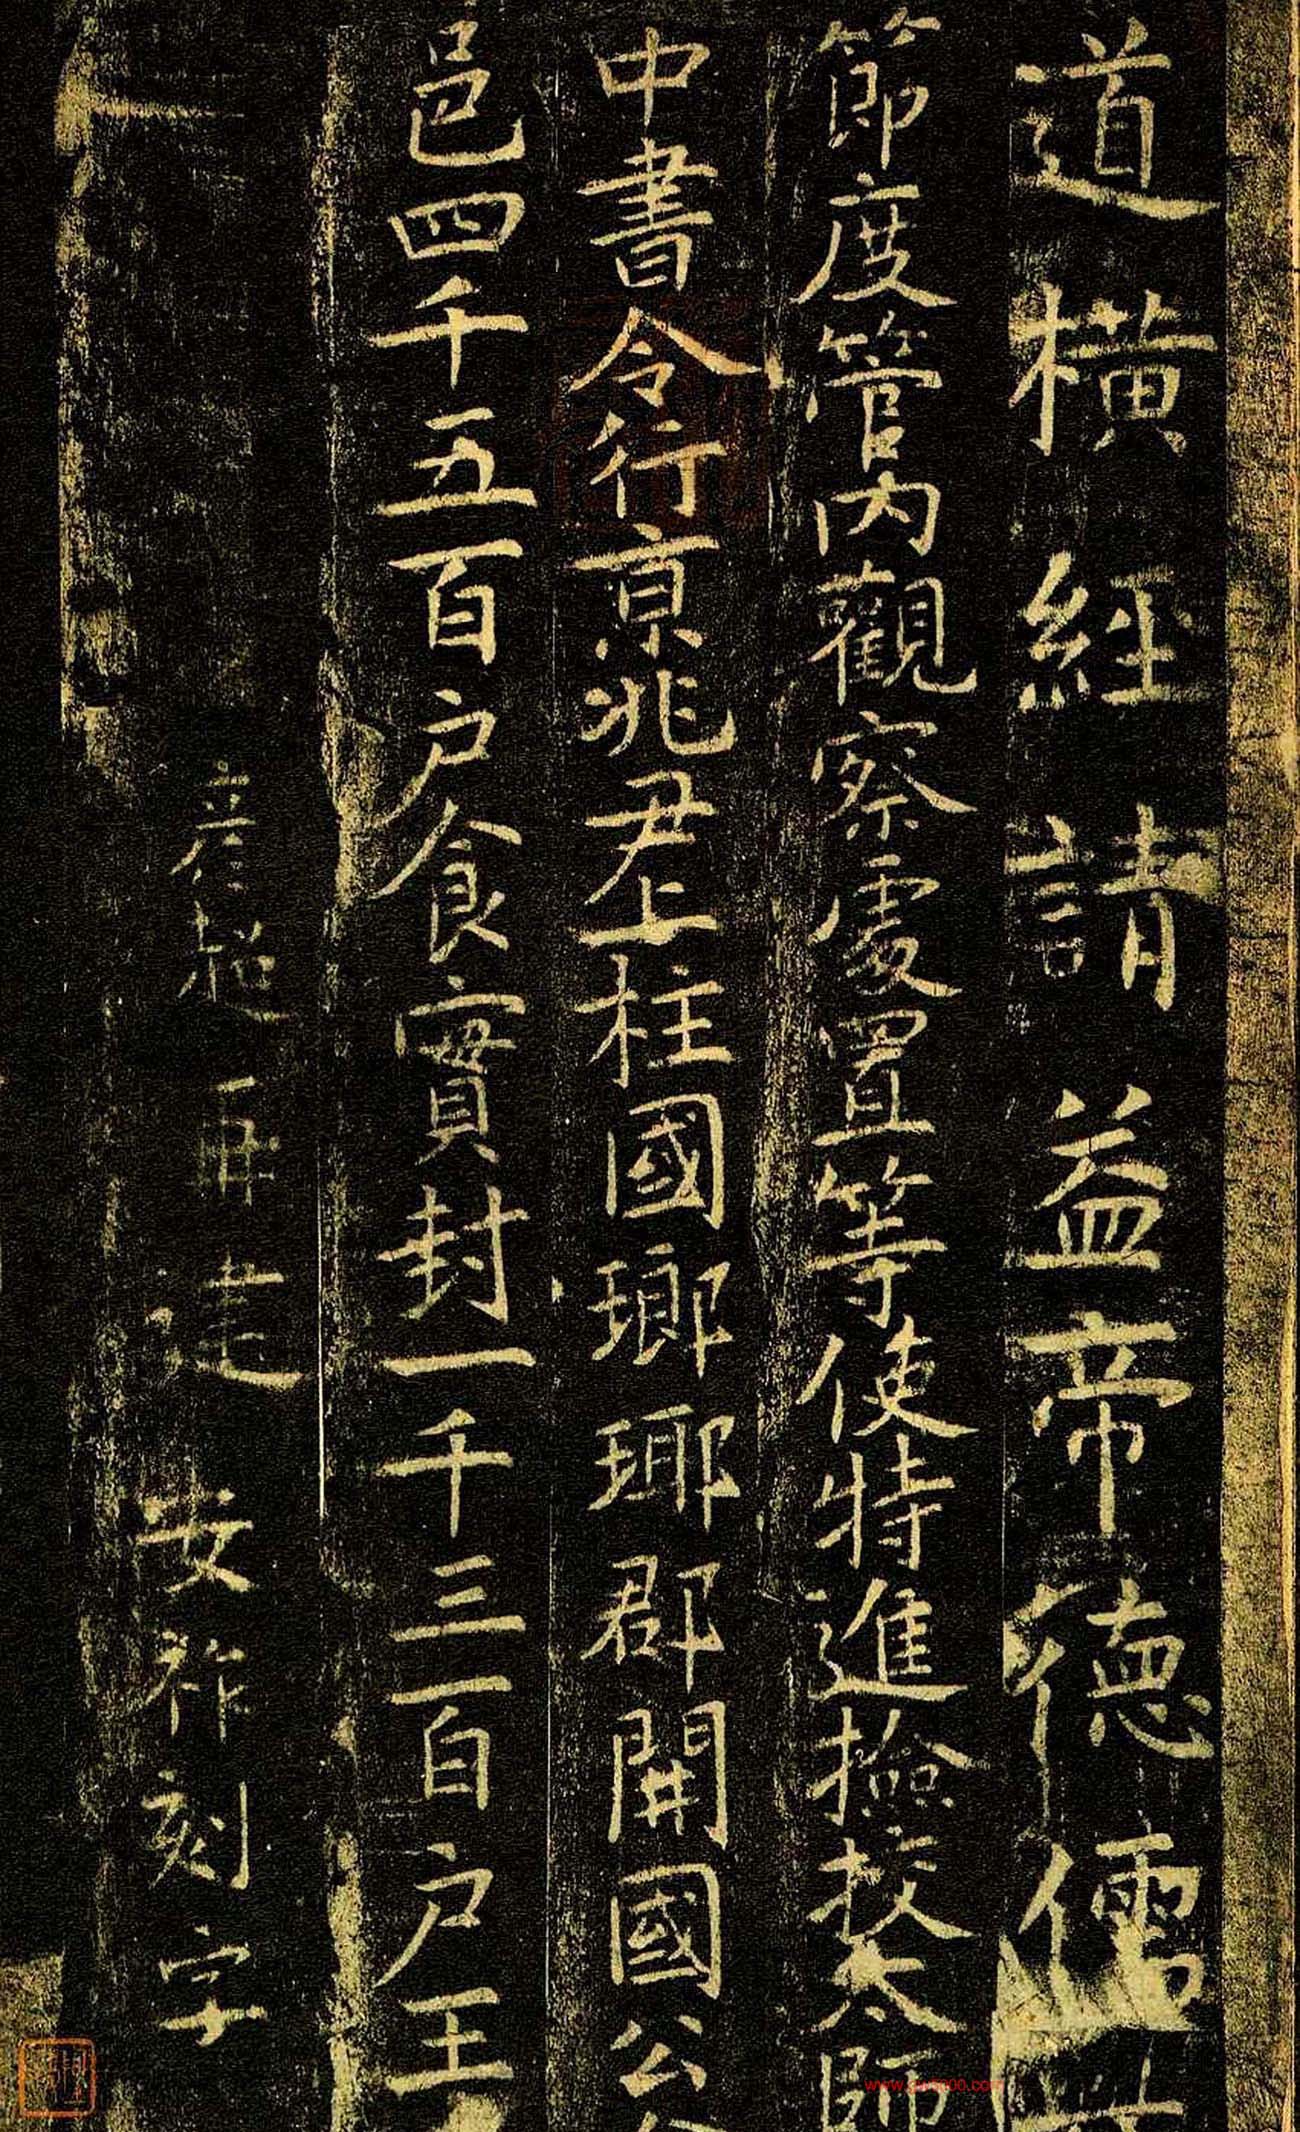 道橫經請益帝德儒
節度管內觀察處置等使特進撿挍太師
中書令行京兆尹上柱國瑯瑘郡開國公
邑四千五百戶食實封一千三百戶王
彥超再建 安祚刻字